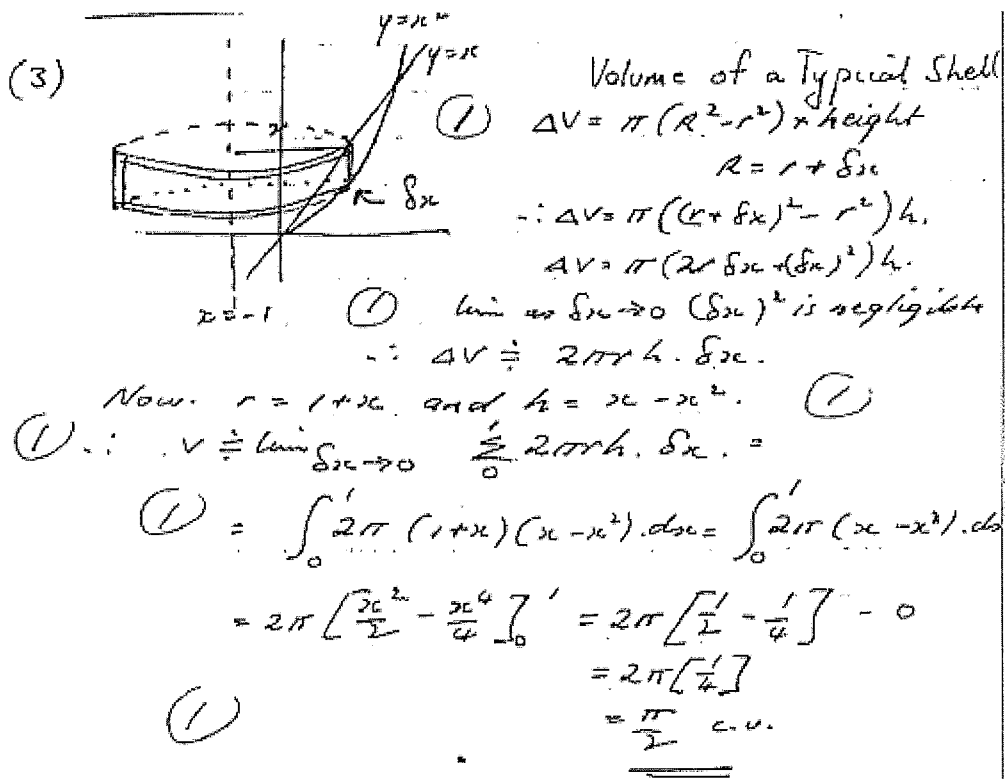 y=x²
y=x
(3)
Volume of a Typical Shell
① ΔV = π(R²-r²) × height
R = r + δx
∴ ΔV = π((r+δx)² - r²)h.
ΔV = π(2r δx + (δx)²)h.
r
δx
x=-1
① lim as δx→0 (δx)² is negligible
∴ ΔV ≑ 2πrh. δx.
Now. r = 1+x and h = x - x². ①
① ∴ V ≑ lim δx→0 Σ₀¹ 2πrh. δx. =
① = ∫₀¹ 2π (1+x)(x-x²).dx = ∫₀¹ 2π (x-x³).dx
= 2π [x²/2 - x⁴/4]₀¹ = 2π [1/2 - 1/4] - 0
= 2π [1/4]
① = π/2 c.u.